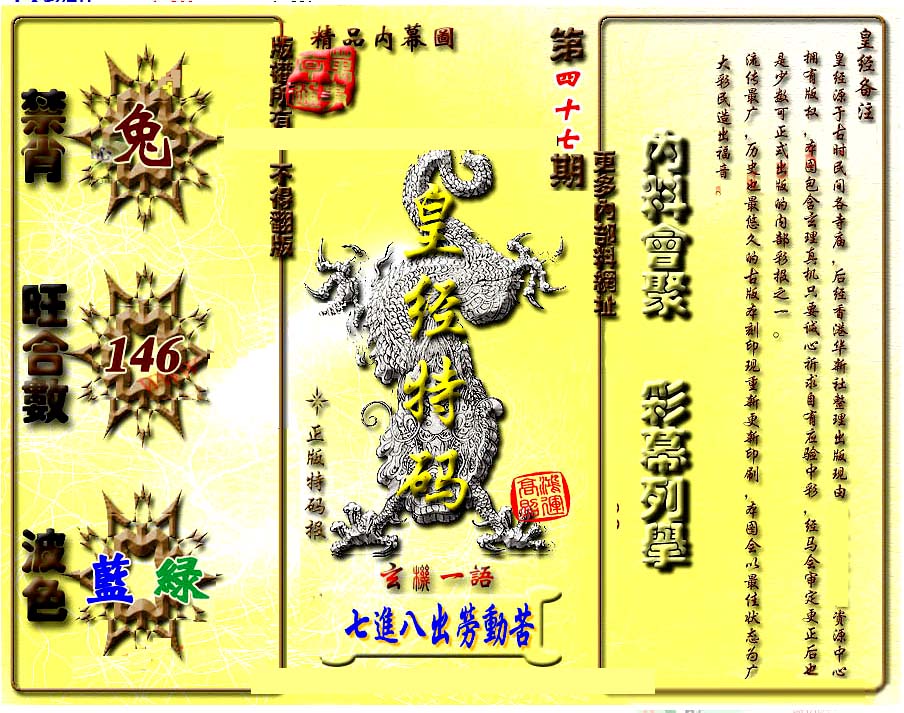 皇经备注
皇经源于古时民间各寺庙，后经香港华新社整理出版现由 资源中心
拥有版权，本图包含玄理真机只要诚心祈求自有应验中彩，经马会审定更正后也
是少数可正式出版的内部彩报之一。
流传最广，历史也最悠久的古版本刻印现重新更新印刷，本图会以最佳状态为广
大彩民造出福音
內料會聚 彩幕列舉
更多內部料網址
第四十七期
精品内幕圖
版權所有 不得翻版
皇经特码
正版特码报
鴻運高照
玄機一語
七進八出勞動苦
禁肖
兔
旺合數
146
波色
藍 綠